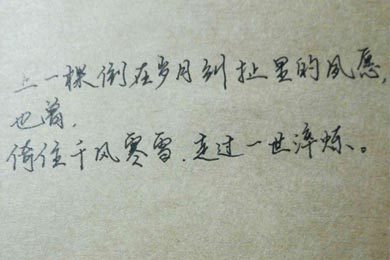 上一棵倒在岁月到扯里的风愿,
也曾,
倚住千风寒雪.走过一世淬炼。